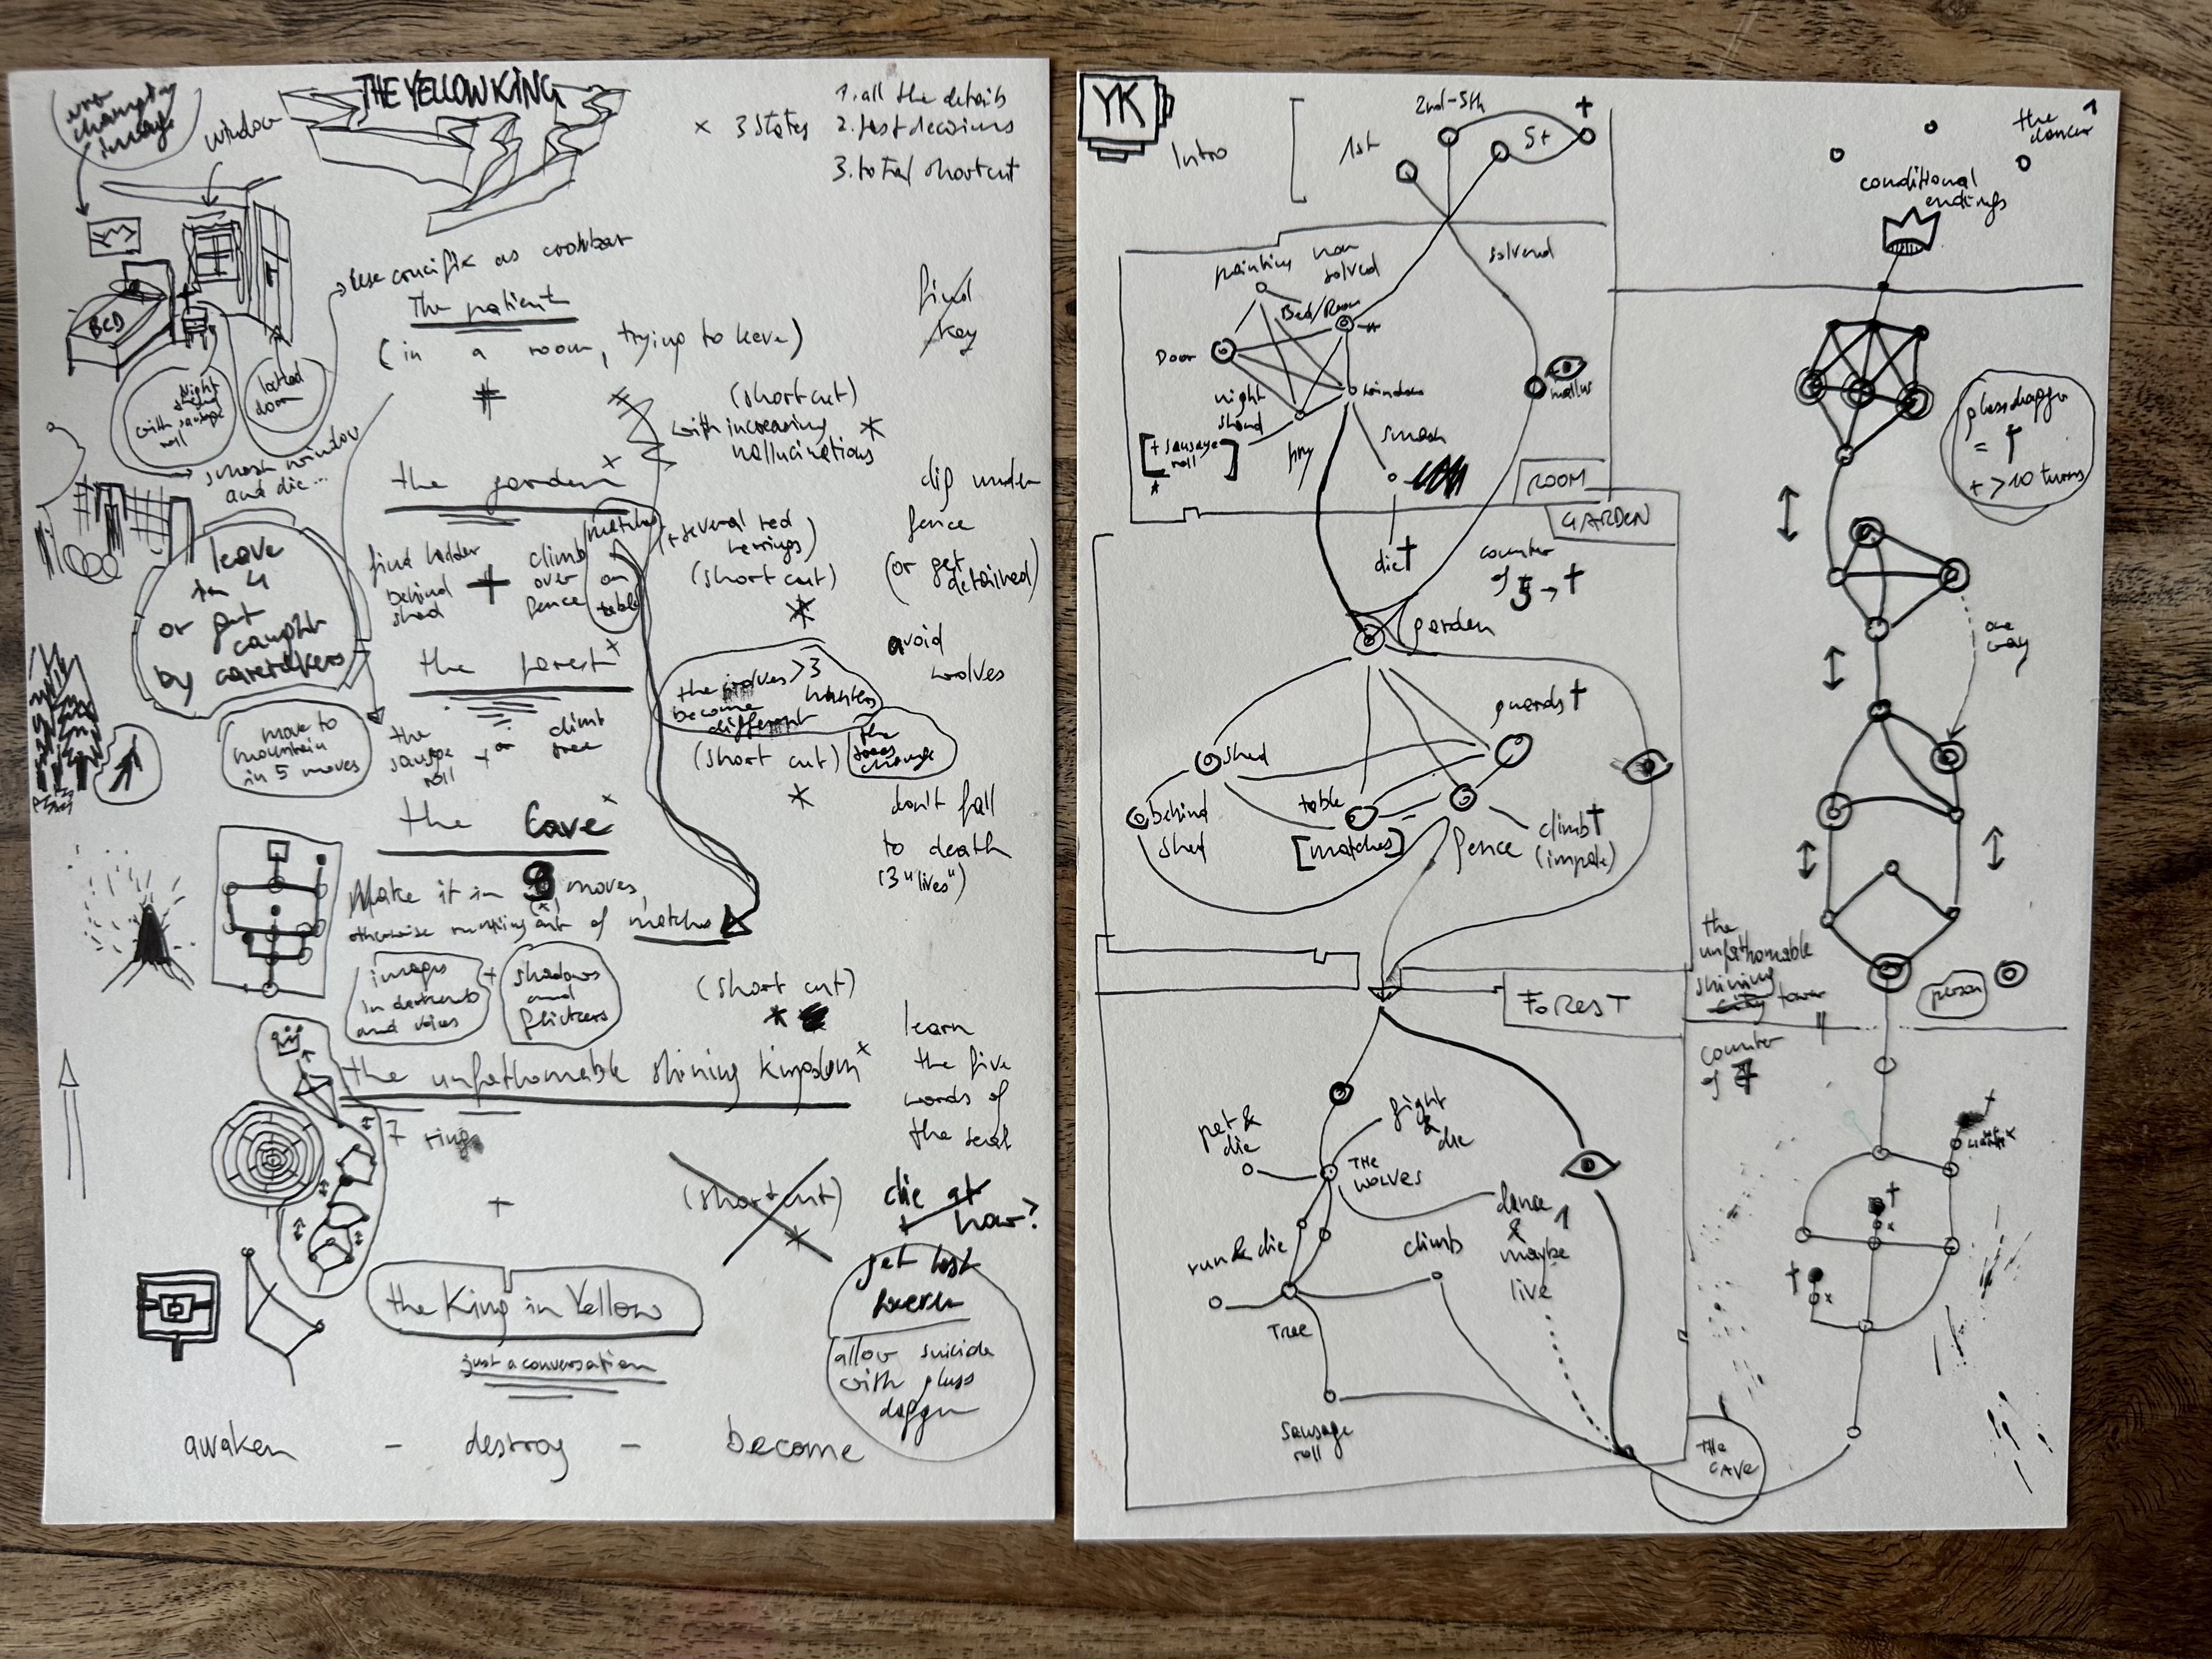 THE YELLOW KING
× 3 states
1. all the details
2. fast decisions
3. total shortcut
window
BED
use crucifix as crowbar
The patient
(in a room, trying to leave)
find
key
night
stand
with sausage
roll
locked
door
(shortcut)
with increasing
hallucinations
smash window
and die...
the garden
find ladder
behind
shed
+
climb
over
fence
matches
on
table
(+ several red
herrings)
(short cut)
dig under
fence
(or get
detained)
leave
in 4
or get
caught
by caretakers
the forest
avoid
wolves
the wolves >3
become
different
hunters
(short cut)
the
trees
change
move to
mountain
in 5 moves
the
sausage
roll
+
or
climb
tree
the Cave
don't fall
to death
(3 "lives")
Make it in 8 moves,
otherwise running out of matches
images
in darkness
and voices
+
shadows
and
flickers
(short cut)
the unfathomable shining kingdom
learn
the five
words of
the seal
7 rings
+
(short cut)
die at
how?
get lost
allow suicide
with glass
dagger
the King in Yellow
just a conversation
awaken - destroy - become
YK
Intro
1st
2nd-5th
5+
+
painting
non
solved
solved
Bed/Room
Door
night
stand
[+ sausage
roll]
window
smash
die†
ROOM
GARDEN
counter
of 5 → †
garden
guards †
shed
behind
shed
table
[matches]
fence
climb†
(impale)
FOREST
pet &
die
fight
&
die
THE
WOLVES
dance
&
maybe
live
run & die
climb
Tree
sausage
roll
THE
CAVE
the
dancer
1
conditional
endings
glass dagger
= †
+ >10 turns
one
way
the
unfathomable
shining
city tower
person
counter
of 7